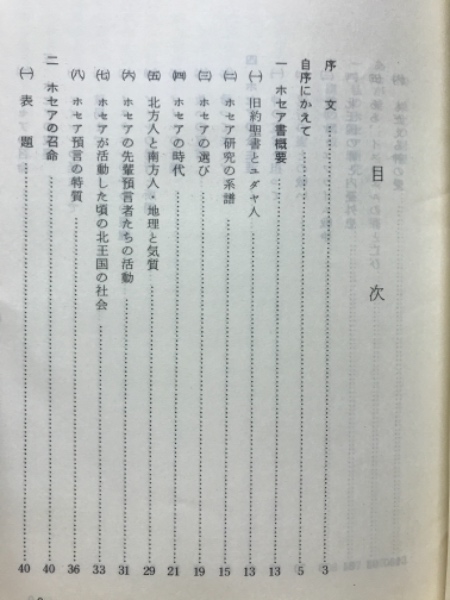 目次
序文……3
自序にかえて……5
一 ホセア書概要……13
㈠ 旧約聖書とユダヤ人……13
㈡ ホセア研究の系譜……15
㈢ ホセアの選び……19
㈣ ホセアの時代……21
㈤ 北方人と南方人・地理と気質……29
㈥ ホセアの先輩預言者たちの活動……31
㈦ ホセアが活動した頃の北王国の社会……33
㈧ ホセア預言の特質……36
二 ホセアの召命……40
㈠ 表題……40